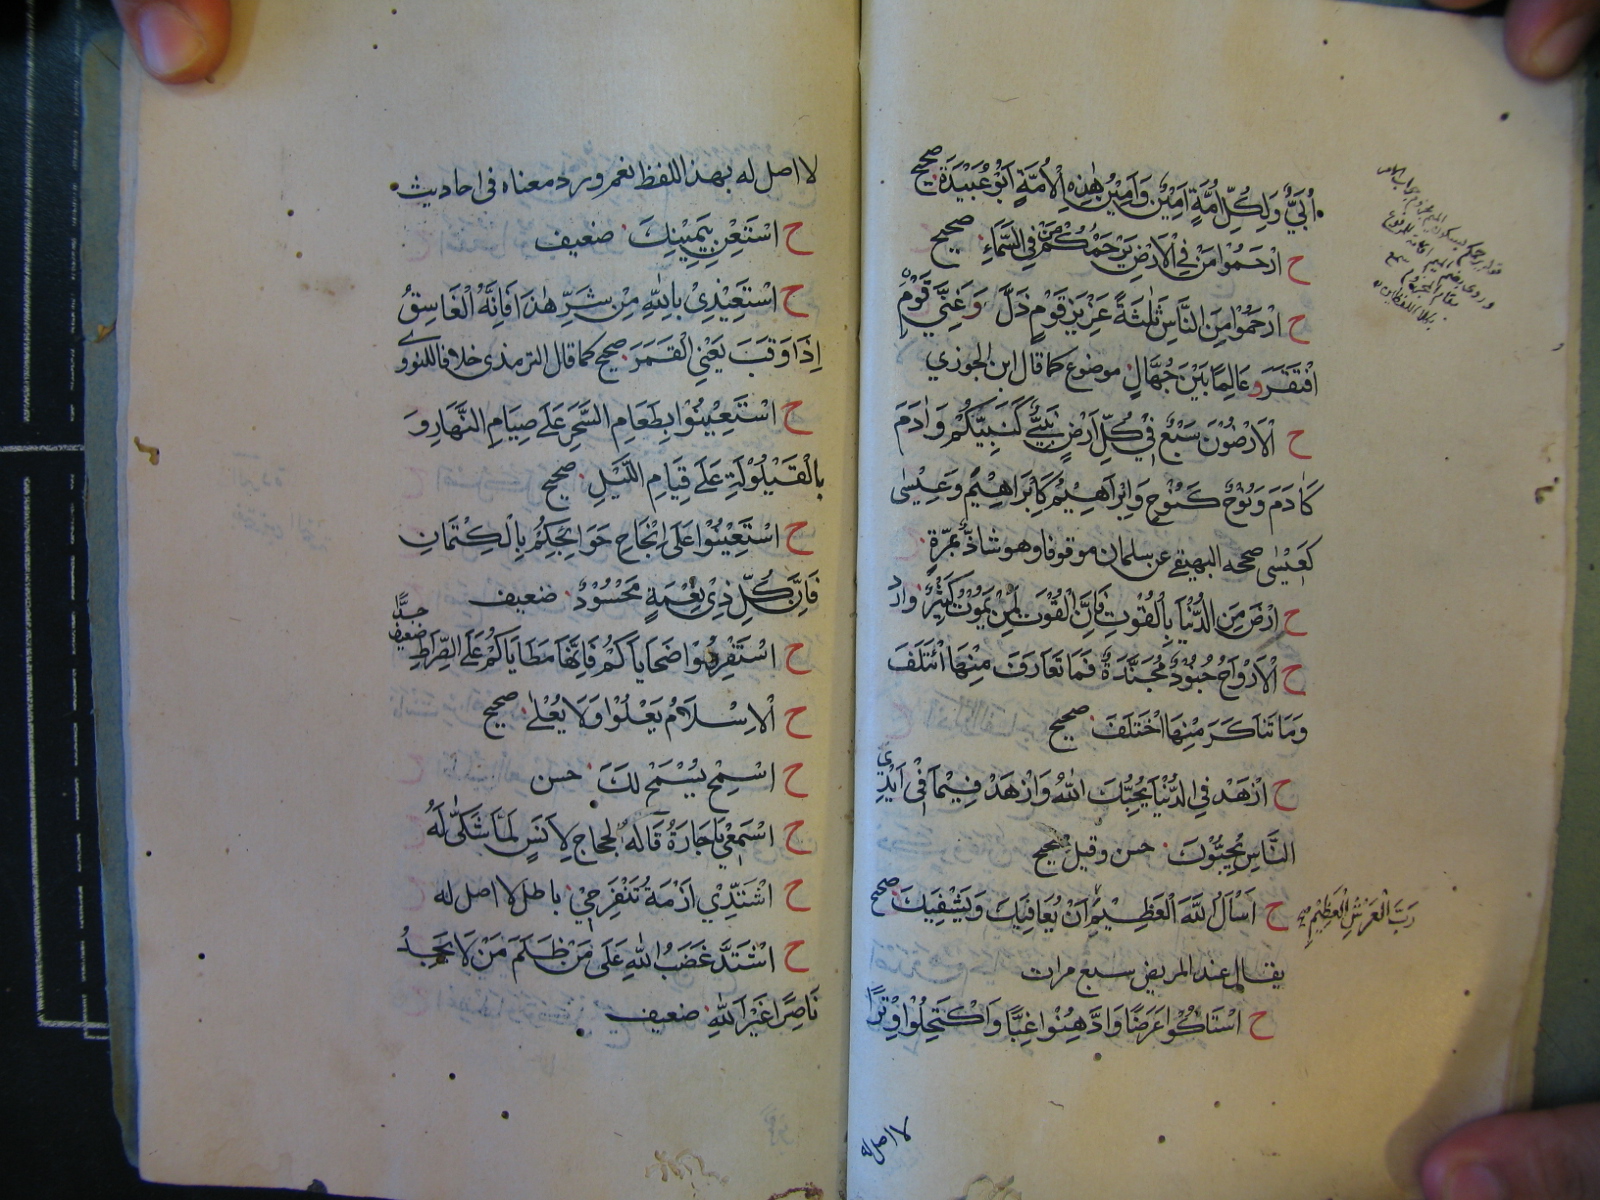 أُبَيٌّ وَلِكُلِّ أُمَّةٍ اَمِيْنٌ وَاَمِيْنُ هٰذِهِ الْاُمَّةِ اَبُوْ عُبَيْدَةَ صحيح
ح اِرْحَمُوْا مَنْ فِي الْاَرْضِ يَرْحَمْكُمْ مَنْ فِي السَّمَاءِ صحيح
ح اِرْحَمُوْا مِنَ النَّاسِ ثَلٰثَةً عَزِيْزَ قَوْمٍ ذَلَّ وَغَنِيَّ قَوْمٍ
افْتَقَرَ وعَالِمًا بَيْنَ جُهَّالٍ موضوع كما قال ابن الجوزي
ح اَلْاَرْضُوْنَ سَبْعٌ فِيْ كُلِّ اَرْضٍ نَبِيٌّ كَنَبِيِّكُمْ وَاٰدَمَ
كَاٰدَمَ وَنُوْحٌ كَنُوْحٍ وَاِبْرَاهِيْمُ كَاِبْرَاهِيْمَ وَعِيْسٰى
كَعِيْسٰى صححه البهيقي عن سلمان موقوفا وهو شاذ بمرّة
ح اِرْضَ مِنَ الدُّنْيَا بِالْقُوْتِ فَاِنَّ الْقُوْتَ لِمَنْ يَمُوْتُ كَثِيْرٌ وارد
ح اَلْاَرْوَاحُ جُنُوْدٌ مُجَنَّدَةٌ فَمَا تَعَارَفَ مِنْهَا ائْتَلَفَ
وَمَا تَنَاكَرَ مِنْهَا اخْتَلَفَ صحيح
ح اِزْهَدْ فِي الدُّنْيَا يُحِبُّكَ اللهُ وَازْهَدْ فِيْمَا فِيْ اَيْدِي
النَّاسِ يُحِبُّوْنَ حسن وقيل صحيح
ح اَسْأَلُ اللهَ الْعَظِيْمَ اَنْ يُعَافِيَكَ وَيَشْفِيَكَ صحيح
رَبَّ الْعَرْشِ الْعَظِيْمِ صح
يقال عند المريض سبع مرات
ح اِسْتَاكُوْا عَرَضًا وَادَّهِنُوْا غِبًّا وَاكْتَحِلُوْا وِتْرًا
لا اصل له
لا اصل له بهذا اللفظ نعم ورد معناه في احاديث
ح اِسْتَعِنْ بِيَمِيْنِكَ ضعيف
ح اِسْتَعِيْذِيْ بِاللهِ مِنْ شَرِّ هٰذَا فَاِنَّهُ الْغَاسِقُ
اِذَا وَقَبَ يَعْنِي الْقَمَرَ صحيح كما قال الترمذي خلافا للنووي
ح اِسْتَعِيْنُوْا بِطَعَامِ السَّحَرِ عَلٰى صِيَامِ النَّهَارِ وَ
بِالْقَيْلُوْلَةِ عَلٰى قِيَامِ اللَّيْلِ صحيح
ح اِسْتَعِيْنُوْا عَلٰى اِنْجَاحِ حَوَائِجِكُمْ بِالْكِتْمَانِ
فَاِنَّ كُلَّ ذِيْ نِعْمَةٍ مَحْسُوْدٌ ضعيف
ح اِسْتَفْرِهُوْا ضَحَايَاكُمْ فَاِنَّهَا مَطَايَاكُمْ عَلَى الصِّرَاطِ ضعيف جدًّا
ح اَلْاِسْلَامُ يَعْلُوْا وَلَا يُعْلٰى صحيح
ح اِسْمَحْ يُسْمَحْ لَكَ حسن
ح اِسْمَعِيْ يَا جَارَةُ قَالَهُ الحجاج لِاَنَسٍ لَمَّا شَكٰى لَهُ
ح اِشْتَدِّيْ اَزْمَةُ تَنْفَرِجِيْ باطل لا اصل له
ح اِشْتَدَّ غَضَبُ اللهِ عَلٰى مَنْ ظَلَمَ مَنْ لَا يَجِدُ
نَاصِرًا غَيْرَ اللهِ ضعيف